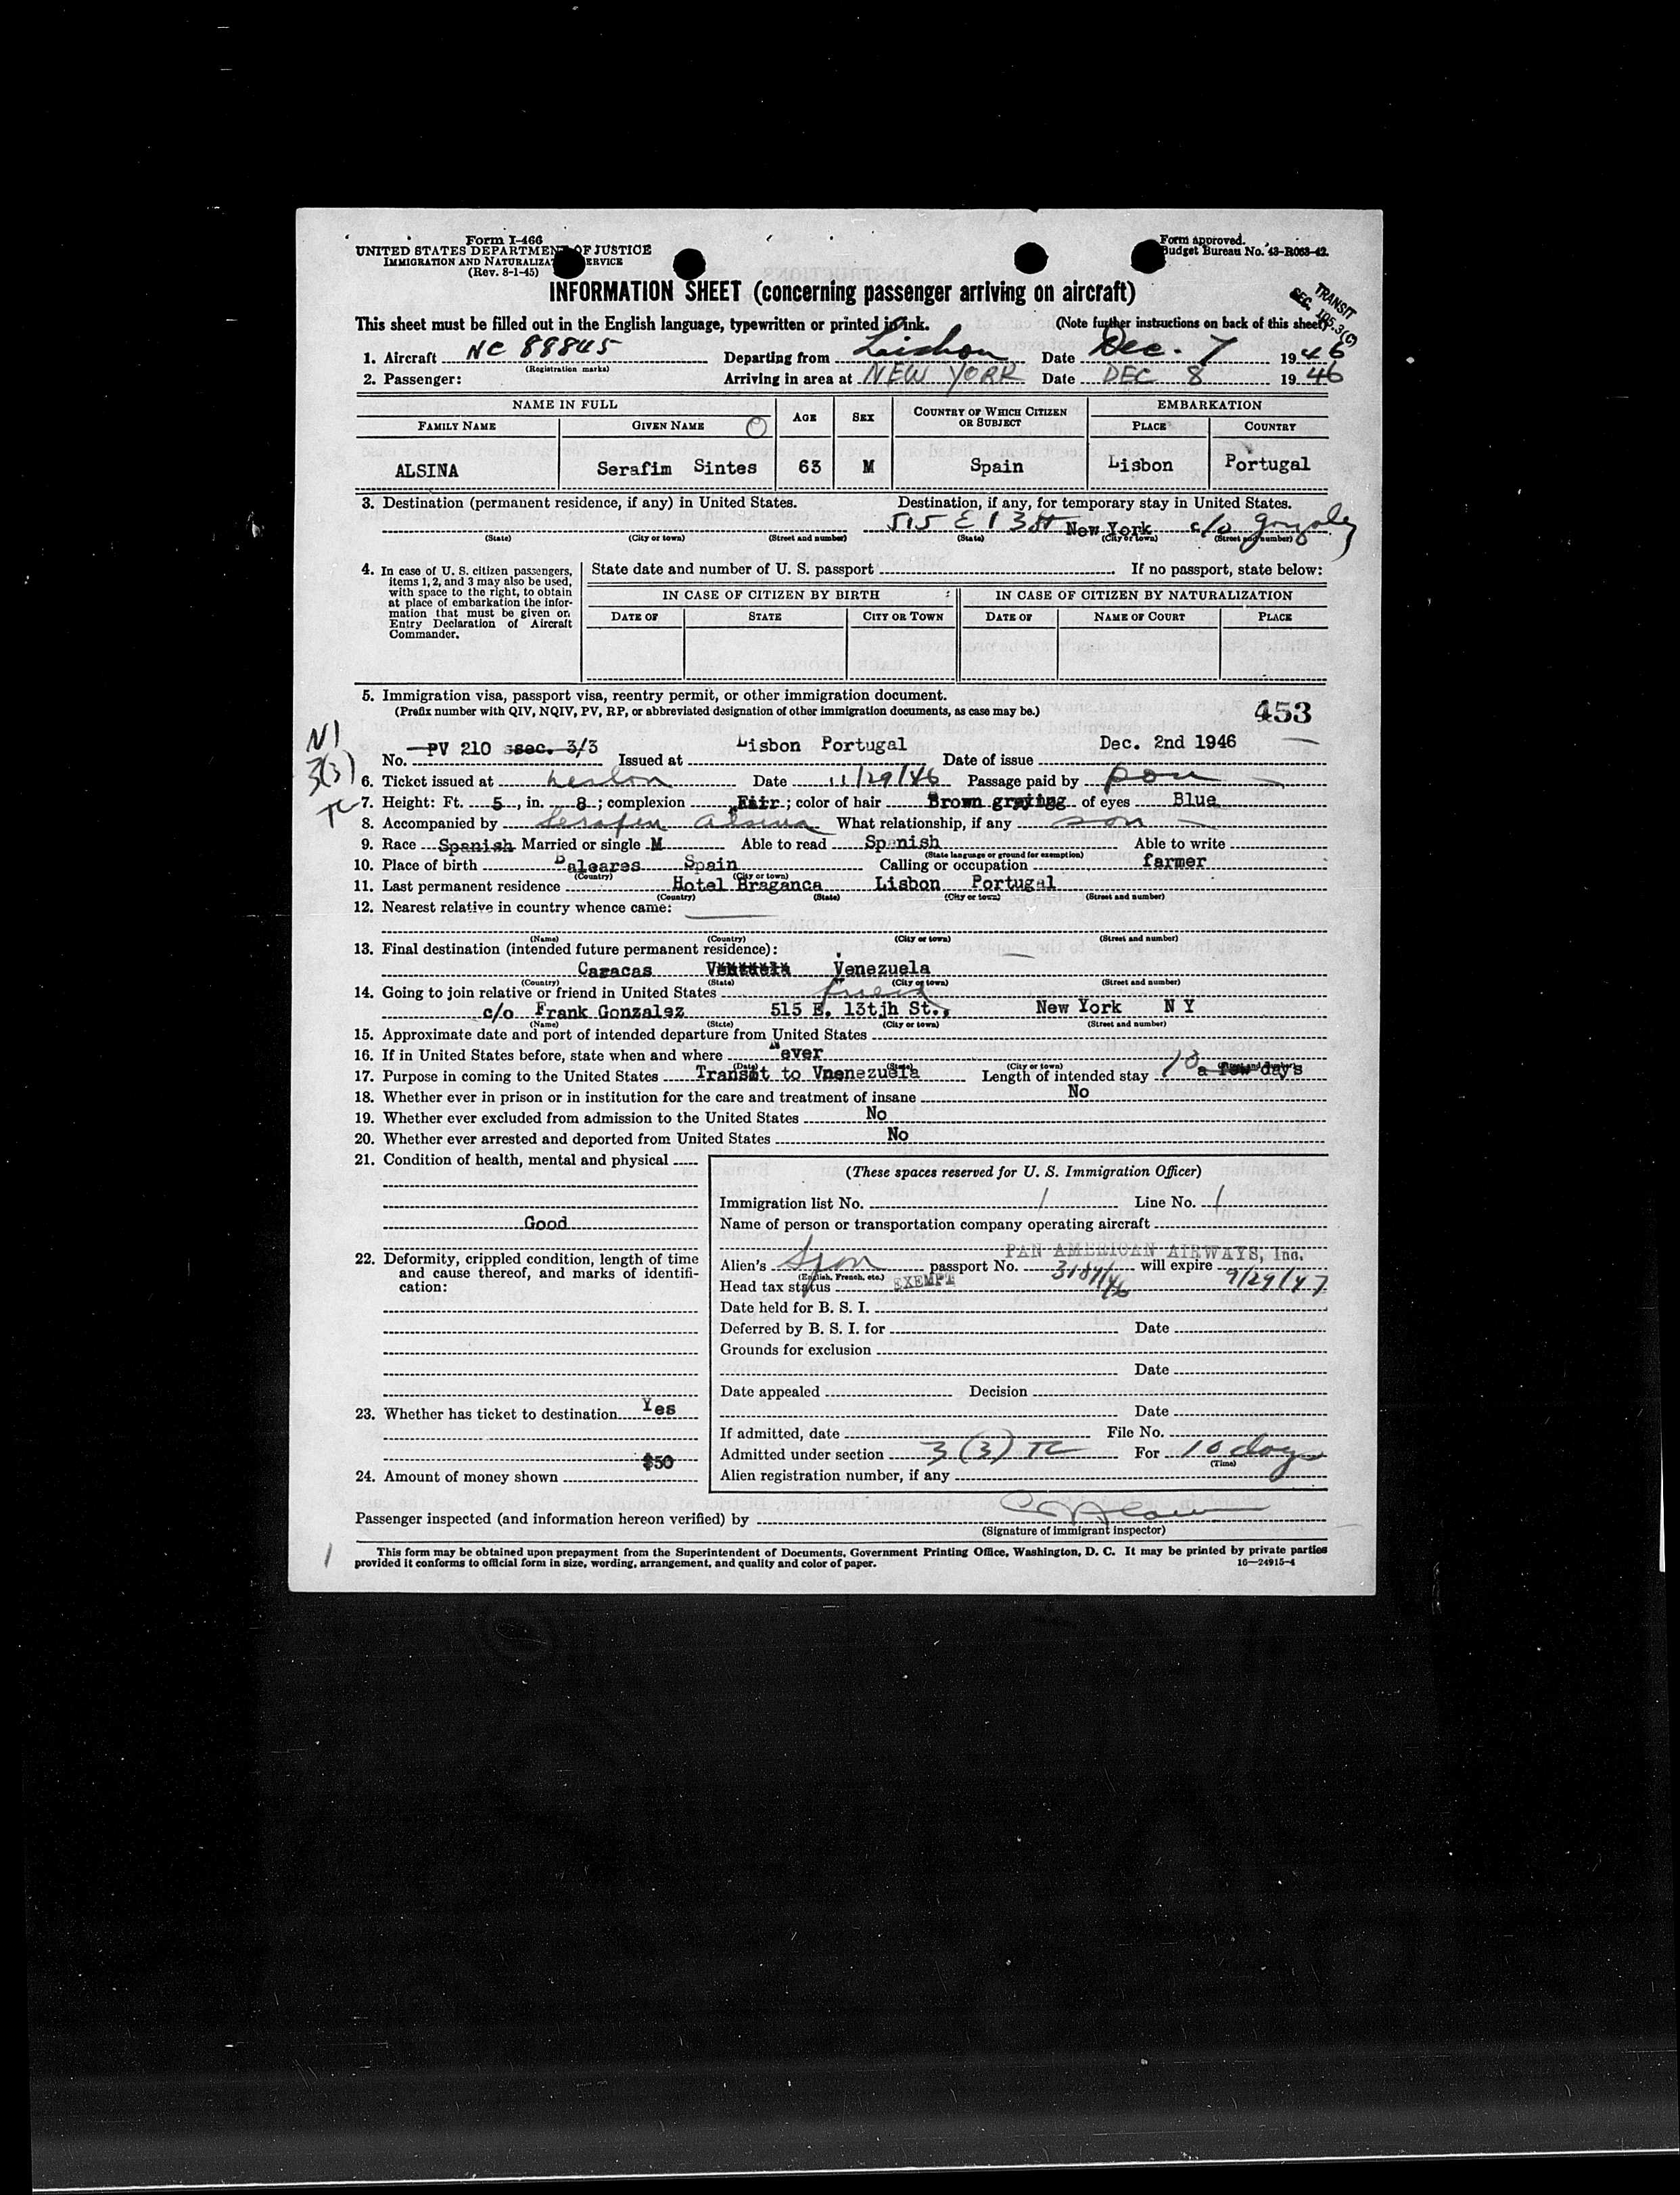 Form I-466
UNITED STATES DEPARTMENT OF JUSTICE
IMMIGRATION AND NATURALIZATION SERVICE
(Rev. 8-1-45)
Form approved.
Budget Bureau No. 43-R063-42.
INFORMATION SHEET (concerning passenger arriving on aircraft)
TRANSIT
SEC. 105.3(C)
This sheet must be filled out in the English language, typewritten or printed in ink. (Note further instructions on back of this sheet)
1. Aircraft NC 88845 Departing from Lisbon Date Dec. 7 1946
(Registration marks)
2. Passenger: Arriving in area at NEW YORK Date DEC 8 1946
NAME IN FULL AGE SEX COUNTRY OF WHICH CITIZEN OR SUBJECT EMBARKATION
FAMILY NAME GIVEN NAME PLACE COUNTRY
ALSINA Serafim Sintes 63 M Spain Lisbon Portugal
3. Destination (permanent residence, if any) in United States. Destination, if any, for temporary stay in United States.
515 E 13 St New York c/o Gonzalez
(State) (City or town) (Street and number) (State) (City or town) (Street and number)
4. In case of U. S. citizen passengers, items 1, 2, and 3 may also be used, with space to the right, to obtain at place of embarkation the information that must be given on Entry Declaration of Aircraft Commander.
State date and number of U. S. passport If no passport, state below:
IN CASE OF CITIZEN BY BIRTH IN CASE OF CITIZEN BY NATURALIZATION
DATE OF STATE CITY OR TOWN DATE OF NAME OF COURT PLACE
5. Immigration visa, passport visa, reentry permit, or other immigration document.
(Prefix number with QIV, NQIV, PV, RP, or abbreviated designation of other immigration documents, as case may be.) 453
NI
3(3)
TC
No. PV 210 ssec. 3/3 Issued at Lisbon Portugal Date of issue Dec. 2nd 1946
6. Ticket issued at Lisbon Date 11/29/46 Passage paid by son
7. Height: Ft. 5, in. 8; complexion Fair; color of hair Brown graying of eyes Blue
8. Accompanied by Serafin Alsina What relationship, if any son
9. Race Spanish Married or single M Able to read Spanish Able to write
(State language or ground for exemption)
10. Place of birth Baleares Spain Calling or occupation farmer
(Country) (City or town)
11. Last permanent residence Hotel Braganca Lisbon Portugal
(Country) (State) (City or town) (Street and number)
12. Nearest relative in country whence came:
(Name) (Country) (City or town) (Street and number)
13. Final destination (intended future permanent residence):
Caracas Venezuela
(Country) (State) (City or town) (Street and number)
14. Going to join relative or friend in United States friend
c/o Frank Gonzalez 515 E. 13tjh St., New York N Y
(Name) (State) (City or town) (Street and number)
15. Approximate date and port of intended departure from United States
16. If in United States before, state when and where Never
(Date) (State) (City or town) (Street and number)
17. Purpose in coming to the United States Transit to Vnenezuela Length of intended stay 10 a few days
18. Whether ever in prison or in institution for the care and treatment of insane No
19. Whether ever excluded from admission to the United States No
20. Whether ever arrested and deported from United States No
21. Condition of health, mental and physical
Good
22. Deformity, crippled condition, length of time and cause thereof, and marks of identification:
23. Whether has ticket to destination Yes
24. Amount of money shown $50
(These spaces reserved for U. S. Immigration Officer)
Immigration list No. 1 Line No. 1
Name of person or transportation company operating aircraft
PAN AMERICAN AIRWAYS, Inc.
Alien's Span passport No. 3187/46 will expire 9/29/47
(English, French, etc.)
Head tax status EXEMPT
Date held for B. S. I.
Deferred by B. S. I. for Date
Grounds for exclusion
Date
Date appealed Decision
Date
If admitted, date File No.
Admitted under section 3(3) TC For 10 days
(Time)
Alien registration number, if any
Passenger inspected (and information hereon verified) by
(Signature of immigrant inspector)
1
This form may be obtained upon prepayment from the Superintendent of Documents, Government Printing Office, Washington, D. C. It may be printed by private parties
provided it conforms to official form in size, wording, arrangement, and quality and color of paper. 16—24915-4